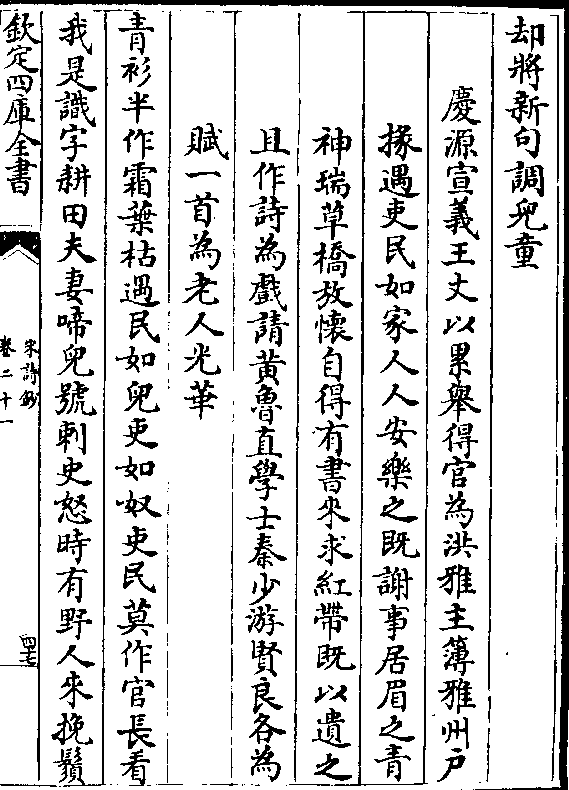 却將新句調兒童
慶源宣義王丈以累舉得官為洪雅主簿雅州户
掾遇吏民如家人人安樂之既謝事居眉之青
神瑞草橋放懷自得有書來求紅帶既以遺之
且作詩為戲請黄魯直學士秦少游賢良各為
賦一首為老人光華
青衫半作霜葉枯遇民如兒吏如奴吏民莫作官長看
我是識字耕田夫妻啼兒號刺史怒時有野人來挽鬚
欽定四庫全書
宋詩鈔
卷二十一
四七